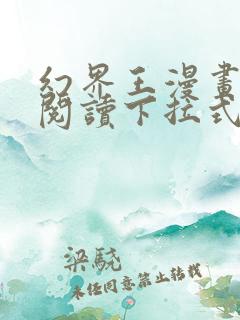 幻界王漫畫
閱讀下拉式
梁駥
未经同意禁止转载